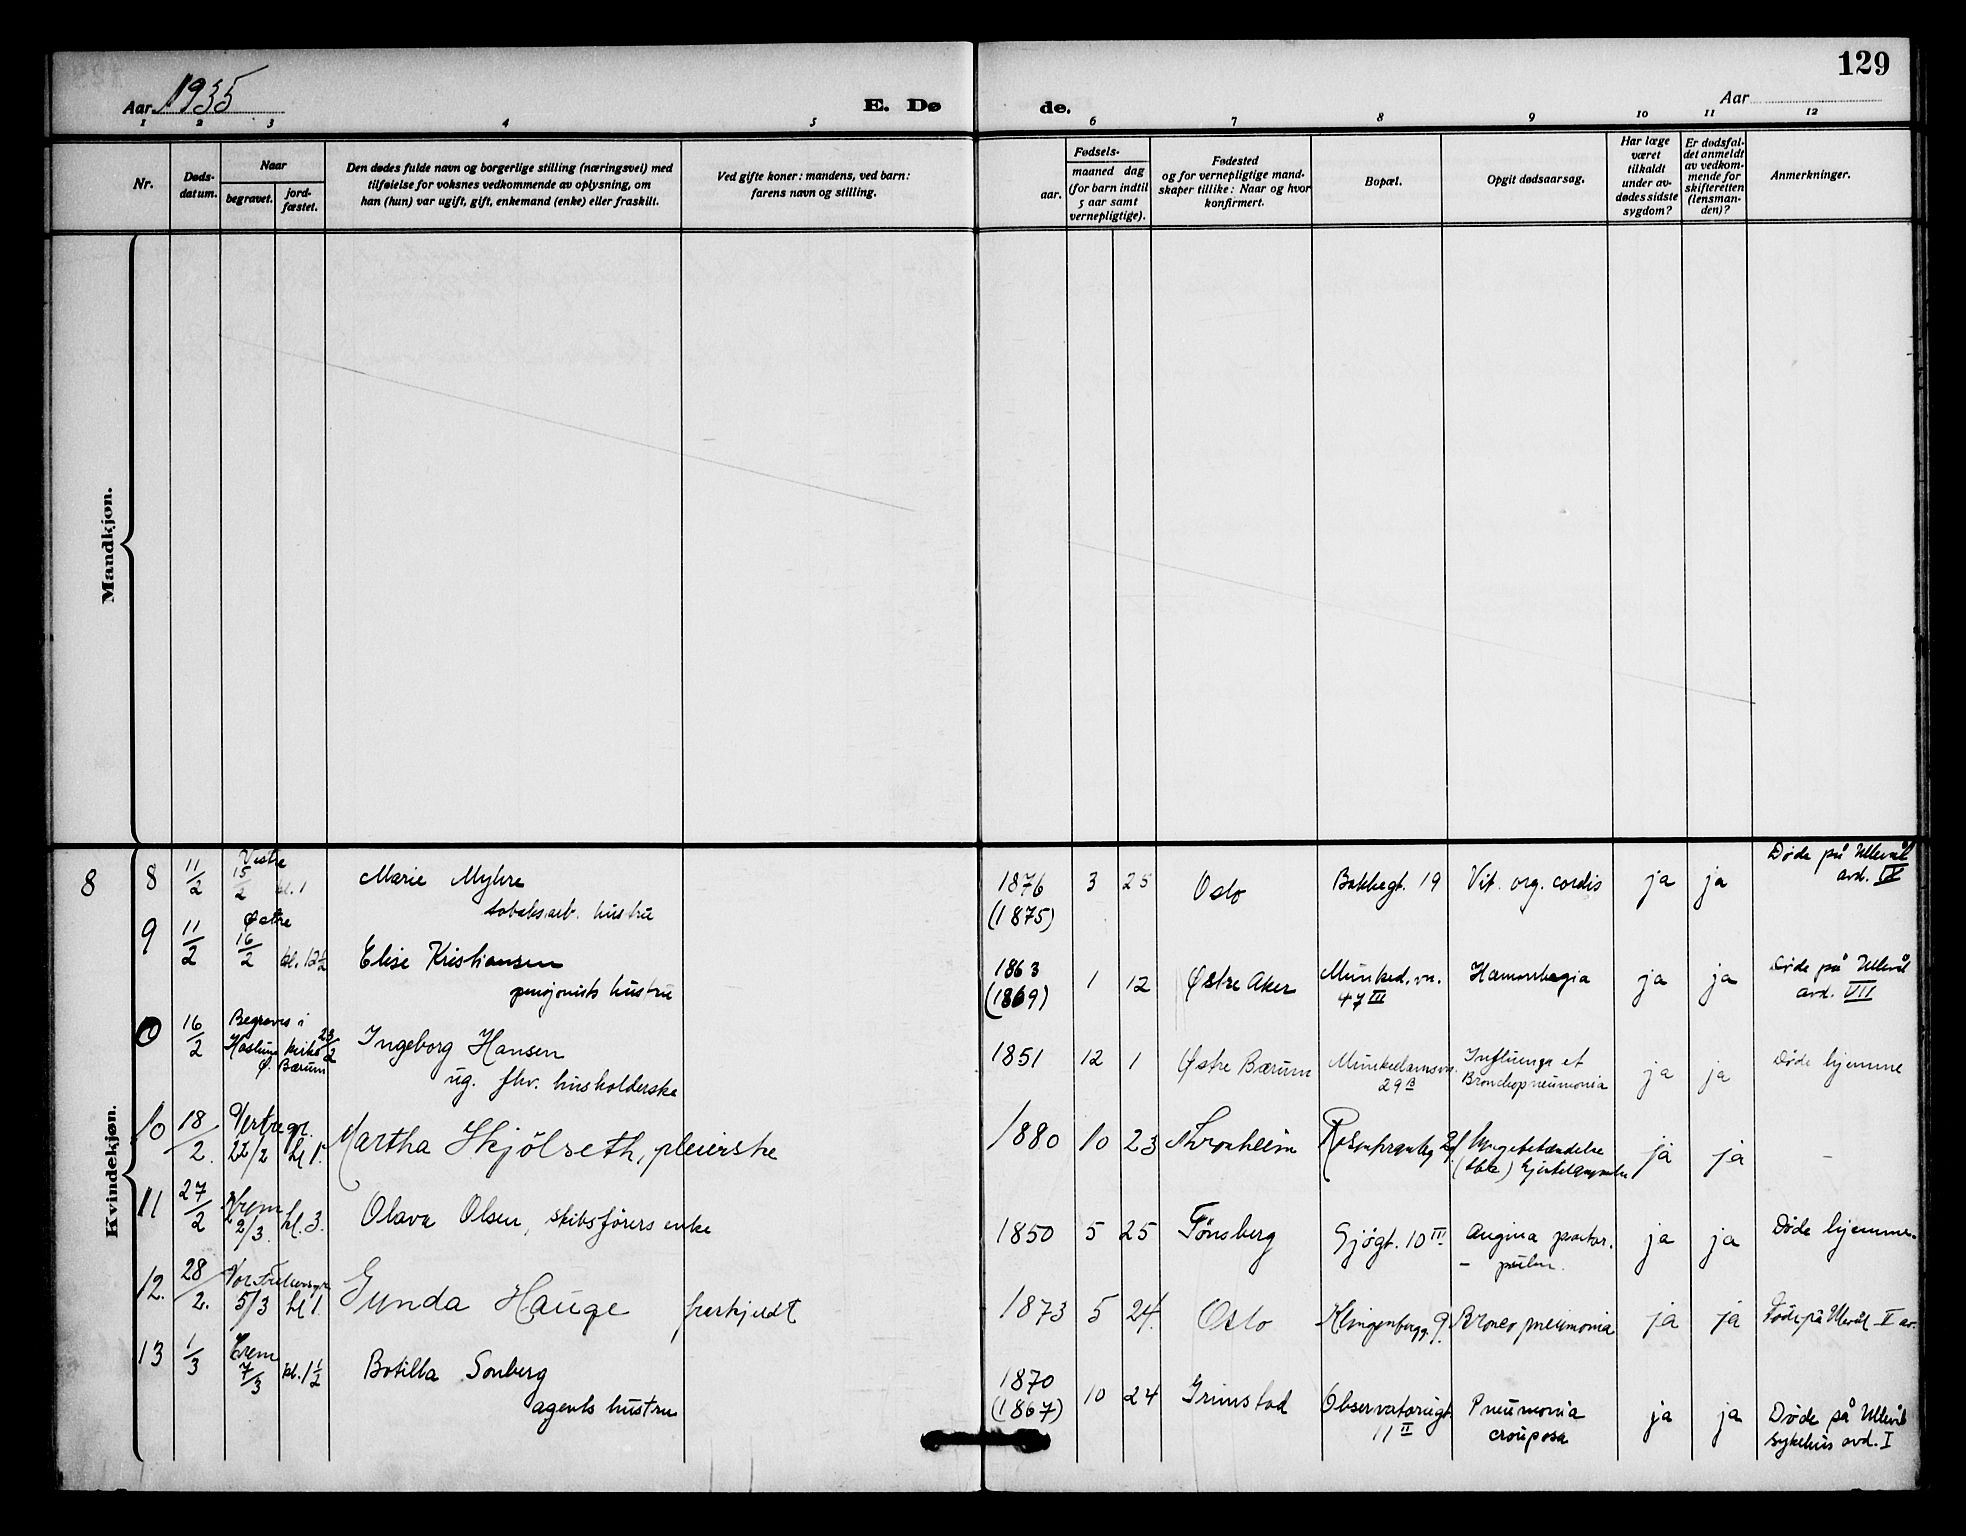 129
Aar 1935
E. Dø
de.
Aar
1 2 3 4 5 6 7 8 9 10 11 12
Nr.
Døds-
datum.
Naar
begravet.
jord-
fæstet.
Den dødes fulde navn og borgerlige stilling (næringsvei) med
tilføielse for voksnes vedkommende av oplysning, om
han (hun) var ugift, gift, enkemand (enke) eller fraskilt.
Ved gifte koner: mandens, ved barn:
farens navn og stilling.
Fødsels-
aar.
maaned dag
(for barn indtil
5 aar samt
vernepligtige).
Fødested
og for vernepligtige mand-
skaper tillike: Naar og hvor
konfirmert.
Bopæl.
Opgit dødsaarsag.
Har læge
været
tilkaldt
under av-
dødes sidste
sygdom?
Er dødsfal-
det anmeldt
av vedkom-
mende for
skifteretten
(lensman-
den)?
Anmerkninger.
Mandkjøn.
Kvindekjøn.
8
8 11/2 Vestre 15/2 kl. 1 Marie Myhre
tobaksarb. hustru
1876 (1875) 3 25 Oslo Bakkegt. 19 Vit. org. cordis ja ja Døde på Ullevål
avd. IX
9 11/2 Østre 16/2 kl. 12 1/2 Elise Kristiansen
pensjonists hustru
1863 (1869) 1 12 Østre Aker Munked. vn. 47 III Hæmorrhagia ja ja Døde på Ullevål
avd. VII
0 16/2 Begraves i Haslum kirke 23/2 Ø. Bærum Ingeborg Hansen
ug. fhv. husholderske
1851 12 1 Østre Bærum Munkedamsvn. 29 B Influenza et Bronchopneumonia ja ja Døde hjemme
10 18/2. 22/2 kl 1. Martha Skjölseth, pleierske
1880 10 23 Tronheim ja ja –
11 27/2 Krem 2/3. kl. 3. Olava Olsen, skibsförers enke
1850 5 25 Tönsberg Sjøgt. 10 III Angina pector.
– pulm. ja ja Døde hjemme.
12. 28/2. Vor Frelsersgr. 5/3 kl 1. Gunda Hauge fraskjeldt
1873 5 24. Oslo Klingenbergg. 9. Bronco pneumonia ja ja Døde på Ullevål II av.
13 1/3 Krem 7/3 kl. 1 1/2 Botilla Sonberg
agents hustru
1870 (1867) 10 24 Grimstad Observatoriegt. 11 II Pneumonia crouposa ja ja Døde på Ullevål
sykehus avd. I